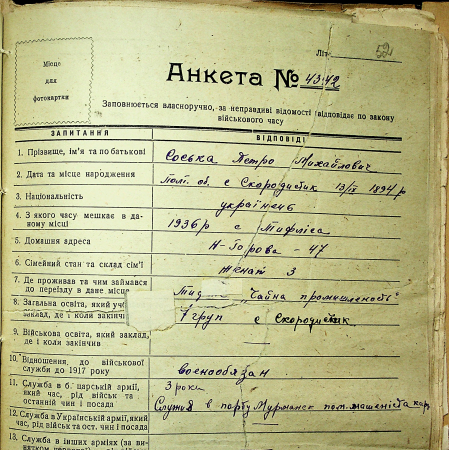 52
Літ.
Місце
для
фотокартки
Анкета № 4342
Заповнюється власноручно, за неправдиві відомості відповідає по закону
військового часу
ЗАПИТАННЯ
ВІДПОВІДІ
1. Прізвище, ім'я та по батькові
Соська Петро Михайлович
2. Дата та місце народження
Полт. об. с Скородистик 13/IX 1894 р
3. Національність
українец
4. З якого часу мешкає в да-
ному місці
1936 р с Тифліса
5. Домашня адреса
Н-Горова - 47
6. Сімейний стан та склад сім'ї
женат 3
7. Де проживав та чим займався
до переїзду в дане місце
"Чайна промишленость"
8. Загальна освіта, який уч
заклад, де і коли закінчив
7 груп с Скородистик
9. Військова освіта, який заклад,
де і коли закінчив
10. Відношення до військової
служби до 1917 року
военообязан
11. Служба в б. царській армії,
який час, рід військ та
останній чин і посада
3 рока
Служил в порту Мурманск пом. машеніста
12. Служба в Українській армії, який
час, рід військ та ост. чин і посада
13. Служба в інших арміях (за ви-